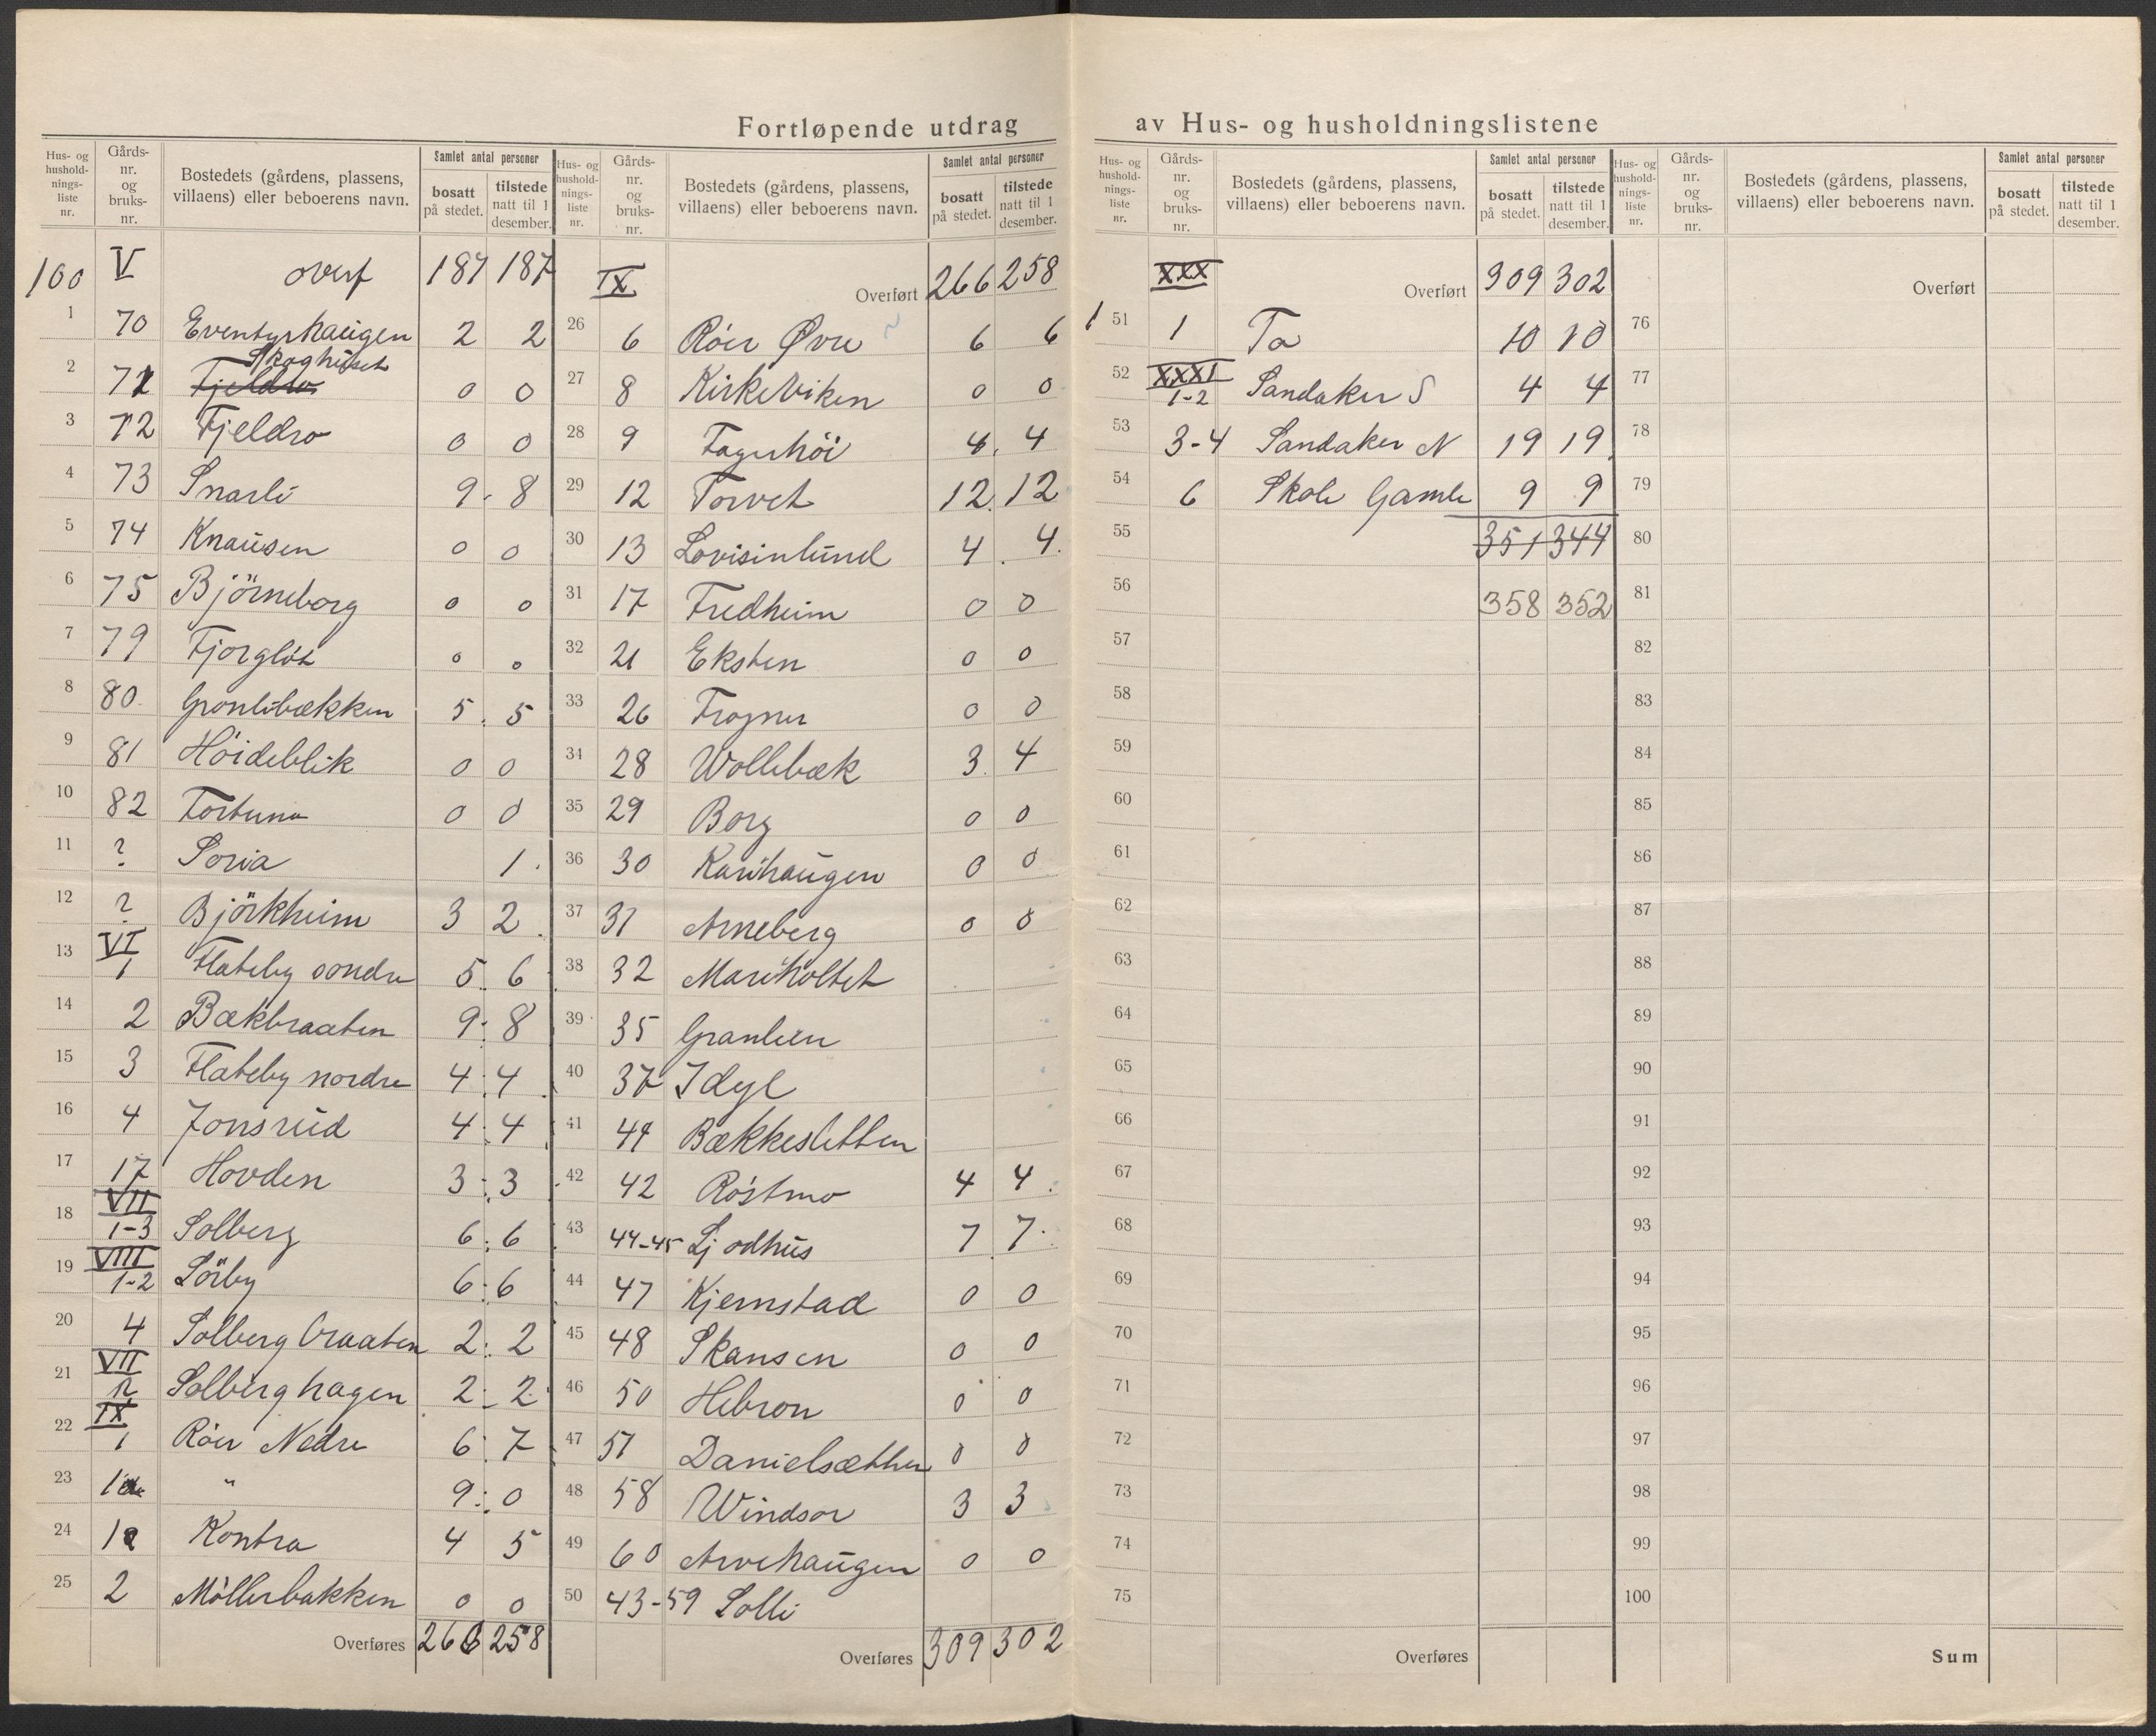 Fortløpende utdrag av Hus- og husholdningslistene
Hus- og husholdnings-liste nr. | Gårds-nr. og bruks-nr. | Bostedets (gårdens, plassens, villaens) eller beboerens navn. | Samlet antal personer: bosatt på stedet. | tilstede natt til 1 desember.
100 V overf 187 187
1 70 Eventyrhaugen 2 2
Skoghuset
2 71 Fjeldro 0 0
3 72 Fjeldro 0 0
4 73 Snarli 9 8
5 74 Knausen 0 0
6 75 Björneborg 0 0
7 79 Fjorgløt 0 0
8 80 Granlibækken 5 5
9 81 Höideblik 0 0
10 82 Fortuna 0 0
11 ? Soria 1
12 ? Björkheim 3 2
13 VI 1 Flateby søndre 5 6
14 2 Bækbraaten 9 8
15 3 Flateby nordre 4 4
16 4 Jonsrud 4 4
17 17 Hovden 3 3
18 VII 1-3 Solberg 6 6
19 VIII 1-2 Sörby 6 6
20 4 Solberg braaten 2 2
21 VII Solberg hagen 2 2
22 IX 1 Röer Nedre 6 7
23 1 " 9 0
24 1 Kontra 4 5
25 2 Möllerbakken 0 0
Overføres 266 258
Hus- og husholdnings-liste nr. | Gårds-nr. og bruks-nr. | Bostedets (gårdens, plassens, villaens) eller beboerens navn. | Samlet antal personer: bosatt på stedet. | tilstede natt til 1 desember.
IX Overført 266 258
26 6 Röer Øvre 6 6
27 8 Kirkeviken 0 0
28 9 Fagerhöi 4 4
29 12 Torvet 12 12
30 13 Lovisenlund 4 4
31 17 Fredheim 0 0
32 21 Eksten 0 0
33 26 Frogner 0 0
34 28 Wollebæk 3 4
35 29 Borg 0 0
36 30 Karihaugen 0 0
37 31 Arneberg 0 0
38 32 Mariholtet
39 35 Granlien
40 37 Idyl
41 41 Bækkesletten
42 42 Röstmo 4 4
43 44-45 Ljodhus 7 7
44 47 Kjernstad 0 0
45 48 Skansen 0 0
46 50 Hebron 0 0
47 51 Danielsætter 0 0
48 58 Windsor 3 3
49 60 Arvehaugen 0 0
50 43-59 Solli
Overføres 309 302
Hus- og husholdnings-liste nr. | Gårds-nr. og bruks-nr. | Bostedets (gårdens, plassens, villaens) eller beboerens navn. | Samlet antal personer: bosatt på stedet. | tilstede natt til 1 desember.
XXX Overført 309 302
1 51 1 Ta 10 10
52 XXXI 1-2 Sandaker S 4 4
53 3-4 Sandaker N 19 19
54 6 Skole Gamle 9 9
55 351 344
56 358 352
57
58
59
60
61
62
63
64
65
66
67
68
69
70
71
72
73
74
75
Overføres
Hus- og husholdnings-liste nr. | Gårds-nr. og bruks-nr. | Bostedets (gårdens, plassens, villaens) eller beboerens navn. | Samlet antal personer: bosatt på stedet. | tilstede natt til 1 desember.
Overført
76
77
78
79
80
81
82
83
84
85
86
87
88
89
90
91
92
93
94
95
96
97
98
99
100
Sum